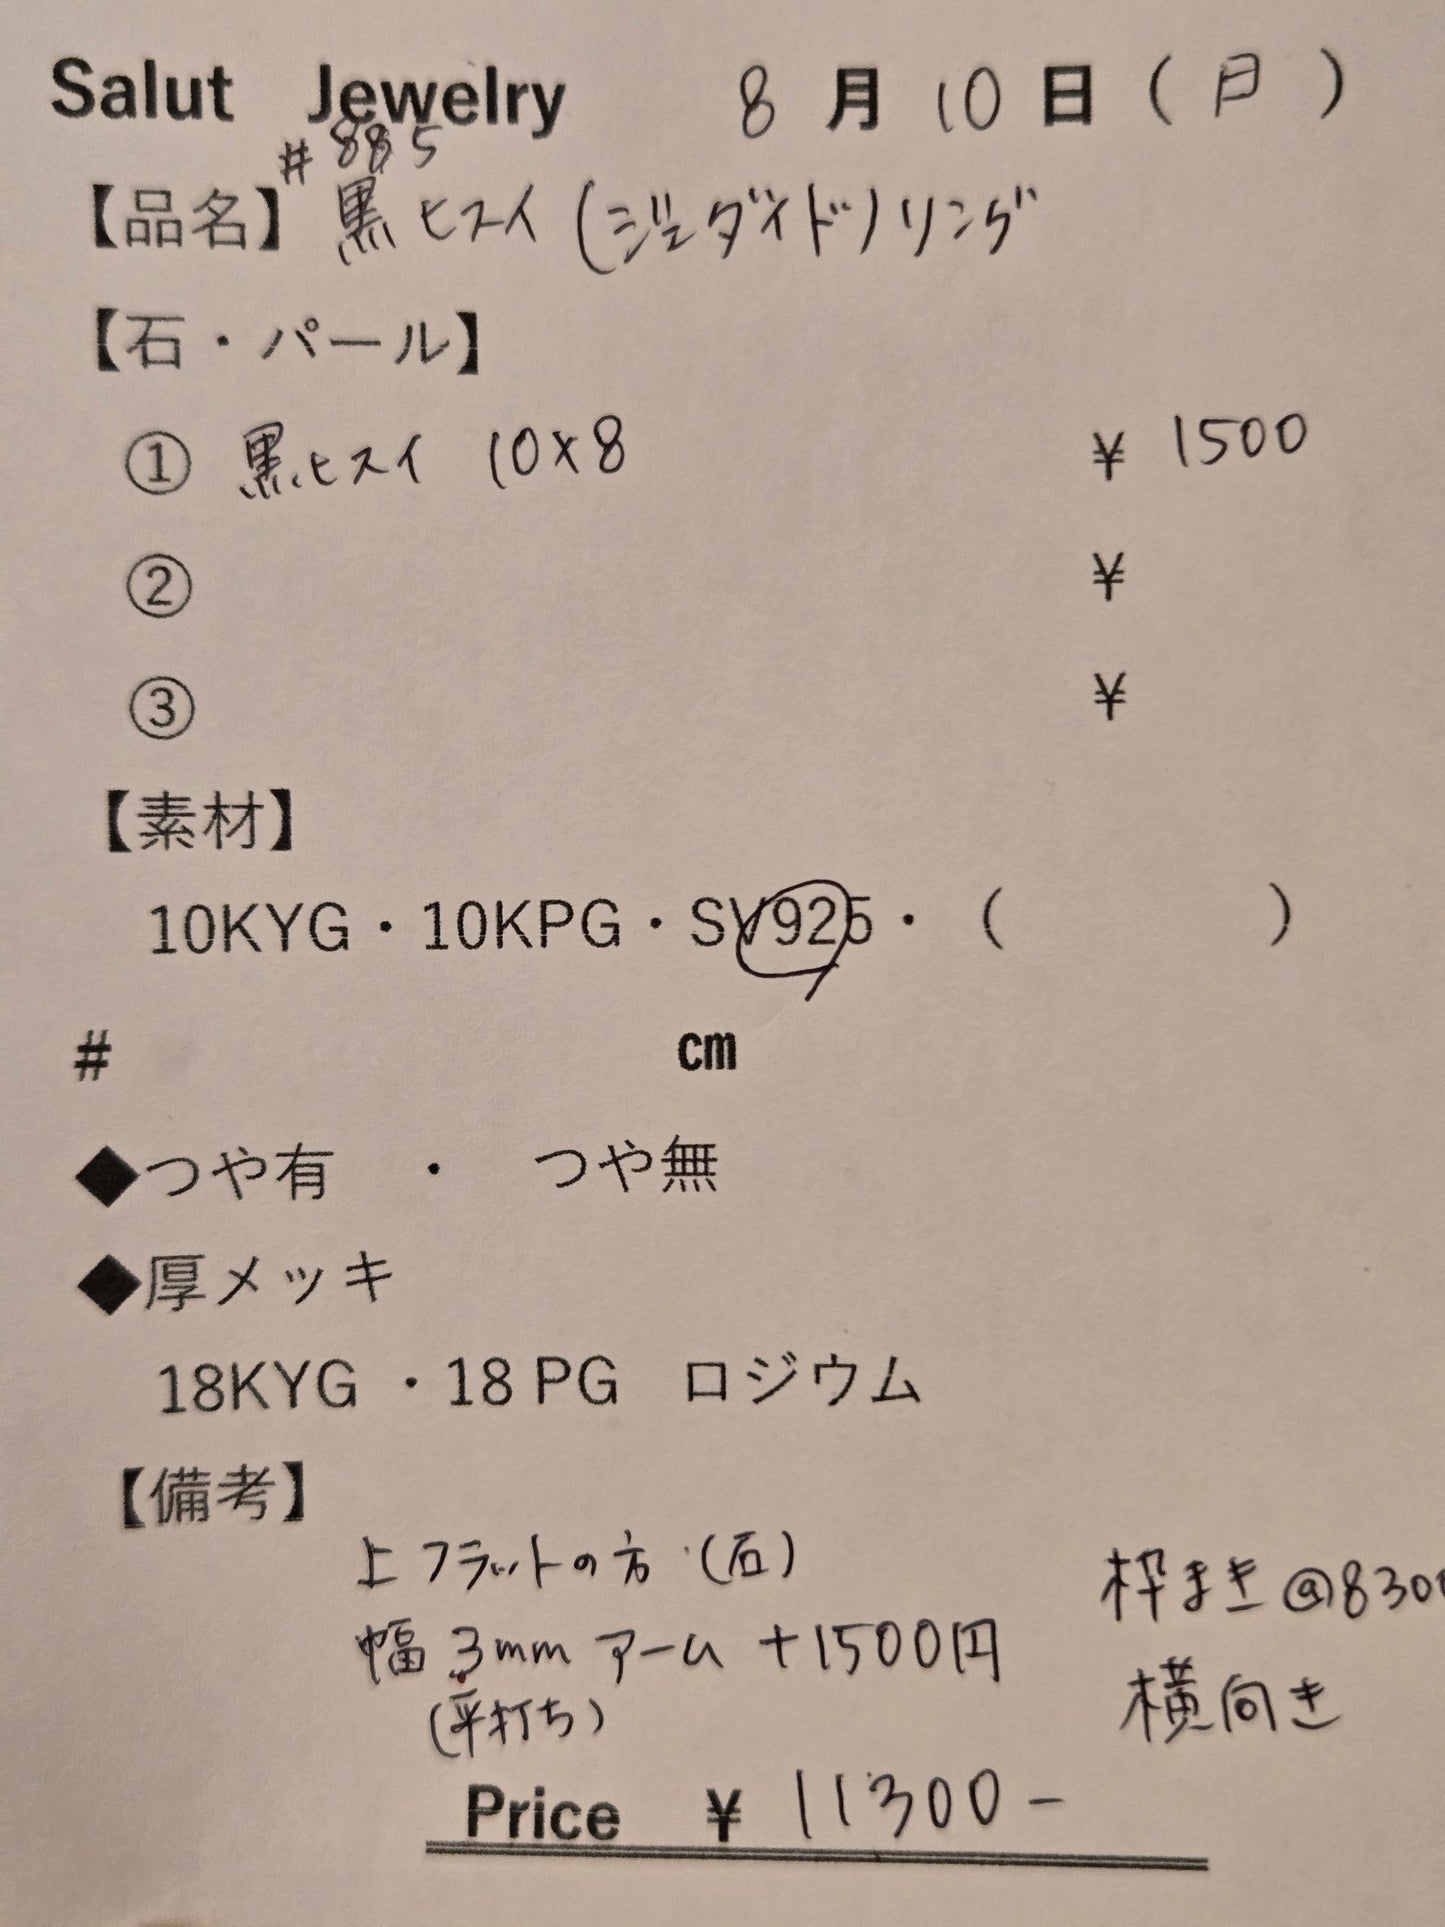 Salut Jewelry 8月10日(日)
#885
【品名】黒ヒスイ(ジェダイド)リング
【石・パール】
① 黒ヒスイ 10×8 ¥1500
② ¥
③ ¥
【素材】
10KYG・10KPG・SV925・( )
# cm
◆つや有 ・ つや無
◆厚メッキ
18KYG ・18 PG ロジウム
【備考】
上フラットの方(石)
枠まき@8300
幅3mmアーム+1500円
(平打ち)
横向き
Price ¥11300-